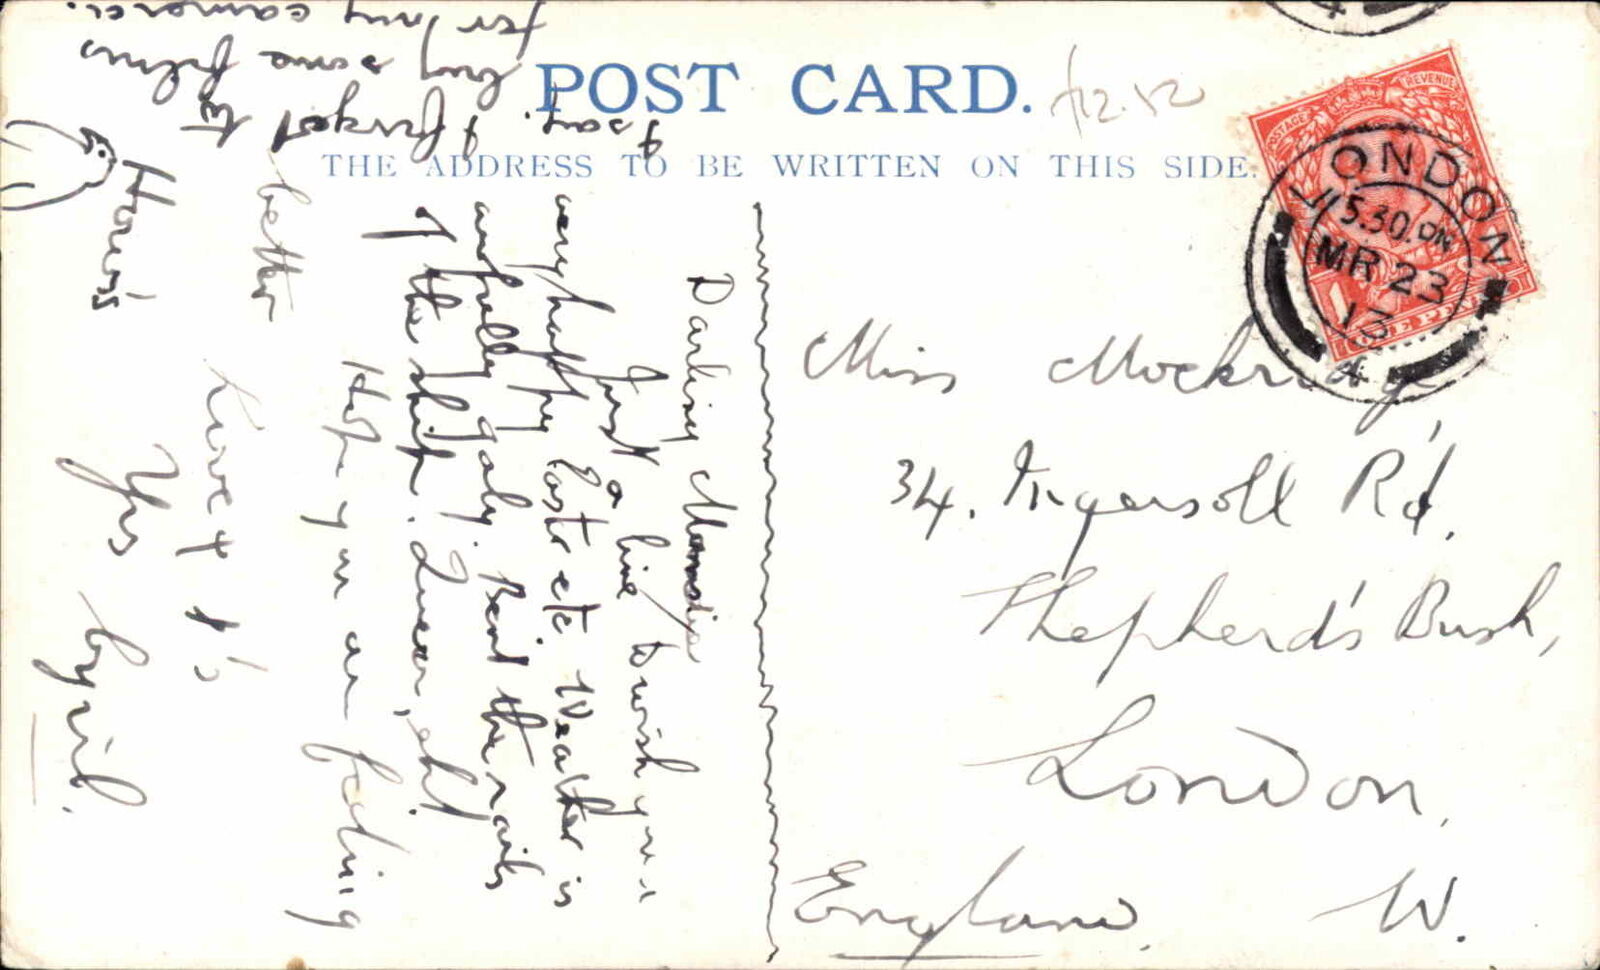 POST CARD.
THE ADDRESS TO BE WRITTEN ON THIS SIDE.
POSTAGE REVENUE
ONE PENNY
LONDON
5.30. PM
MR 23
13
4
Miss Mockridge
34. Ingersoll Rd.
Shepherd's Bush,
London.
England. W.
Darling
Just a line to wish you a
very happy Easter etc Weather is
awfully ugly. Behind the rails
of the ship. Queer, eh!
Hope you are feeling
better
Love & x's
Yrs Cyril.
How's
I say. I forgot to
buy some films
for my camera.